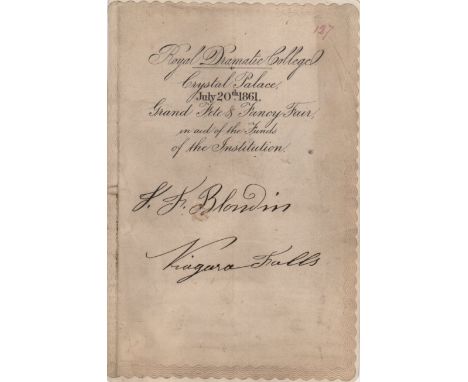 127
Royal Dramatic College
Crystal Palace,
July 20th 1861.
Grand Fête & Fancy Fair,
in aid of the Funds
of the Institution.
J. F. Blondin
Niagara Falls